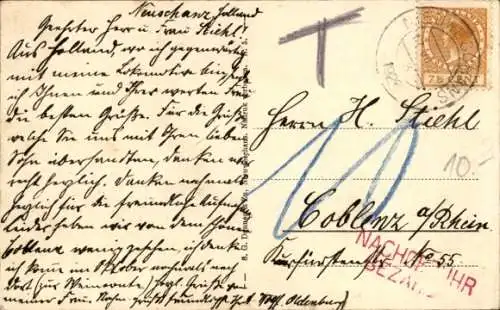 Neuschanz Holland
Geehrter Herr u. Frau Stiehl!
Aus Holland, wo ich gegenwärtig
mit meine Lokomotive bin, sende
ich Ihnen und Ihrer werten Frau
die besten Grüße. Für die Grüße
welche Sie uns mit Ihren lieben
Sohn übersandten, danken wir
recht herzlich. Danken nochmals
herzlich für die freundliche Aufnahme
leider haben wir von dem schönen
Coblenz wenig gesehen, ich denke
ich komme im Oktober nochmals nach
dort (zur Weinernte) Herzl. Grüße von
meiner Frau.
Oldenburg
T
Herrn H. Stiehl
10
10.-
Coblenz a/Rhein
Kurfürstenstr. No 55
NACHGEBÜHR
BEZAHLT